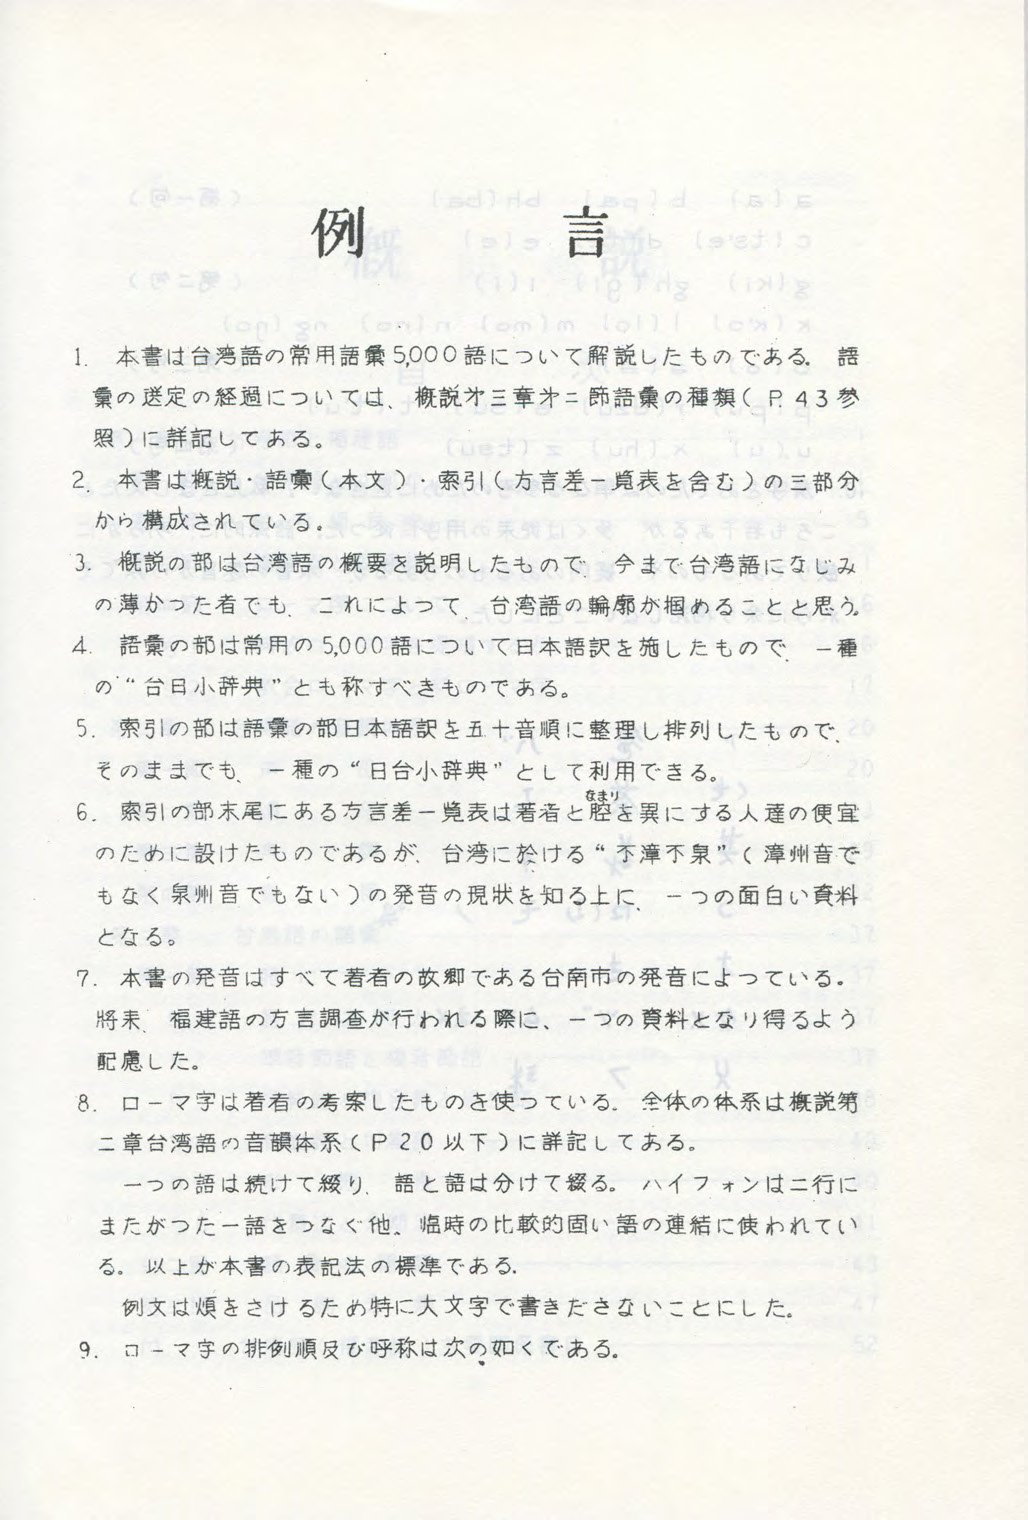 例言
1. 本書は台湾語の常用語彙5,000語について解説したものである。語
彙の選定の経過については、概説才三章才二節語彙の種類(P.43参
照)に詳記してある。
2. 本書は概説・語彙(本文)・索引(方言差一覧表を含む)の三部分
から構成されている。
3. 概説の部は台湾語の概要を説明したもので、今まで台湾語になじみ
の薄かつた者でも、これによつて、台湾語の輪廓が掴めることと思う。
4. 語彙の部は常用の5,000語について日本語訳を施したもので、一種
の“台日小辞典”とも称すべきものである。
5. 索引の部は語彙の部日本語訳を五十音順に整理し排列したもので、
そのままでも、一種の“日台小辞典”として利用できる。
6. 索引の部末尾にある方言差一覧表は著者と腔を異にする人達の便宜
なまり
のために設けたものであるが、台湾に於ける“不漳不泉”(漳州音で
もなく泉州音でもない)の発音の現状を知る上に、一つの面白い資料
となる。
7. 本書の発音はすべて著者の故郷である台南市の発音によつている。
將来、福建語の方言調査が行われる際に、一つの資料となり得るよう
配慮した。
8. ローマ字は著者の考案したものを使つている。全体の体系は概説第
二章台湾語の音韻体系(P20以下)に詳記してある。
一つの語は続けて綴り、語と語は分けて綴る。ハイフォンは二行に
またがつた一語をつなぐ他、臨時の比較的固い語の連結に使われてい
る。以上が本書の表記法の標準である。
例文は煩をさけるため特に大文字で書きださないことにした。
9. ローマ字の排例順及び呼称は次の如くである。